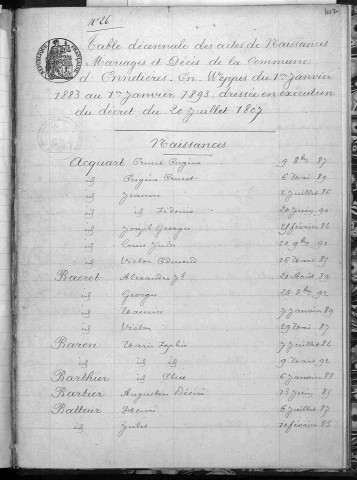 N° 26
Table décennale des actes de Naissances
Mariages et Décès de la Commune
d'Ennetières-En-Weppes du 1er Janvier
1883 au 1er Janvier 1893, dressée en exécution
du décret du 20 Juillet 1807
Naissances
Acquart Ernest Eugène 9 8bre 87
id Eugène Ernest 6 Mai 89
id Jeanne 2 Juillet 86
id id 20 Juin 90
id Joseph Georges 21 février 84
id Louis Jules 10 9bre 90
id Victor Edmond 16 Mars 85
Bacrot Alexandre 21 Août 89
id Georges 28 8bre 92
id Maurice 7 Janvier 89
id Victor 29 Mai 87
Baron Marie Sophie 7 Juillet 86
id id id 9 Mars 92
Barthier id Elise 6 Janvier 85
Bartier Augustin Désiré 13 Juin 85
Batteur Henri 6 Juillet 87
id Jules 12 février 85